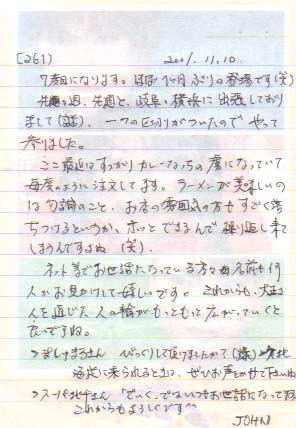 [261] 2001.11.10.
7度目になります。ほぼ1ヶ月ぶりの登場です(笑)
先週と、岐阜、横浜に出張しており
まして、一つの区切りがついたので やって
参りました。
ここ最近はすっかりカレーなっちの虜になっていて
毎度のように注文してます。ラーメンが美味しいの
は勿論のこと、お店の雰囲気の方もすごく落
ちつけるというか、ホッとできるんで繰り返し来て
しまうんですよね (笑)。
ネット等でお世話になっている方々の名前も何
人かお見かけして嬉しいです。これからも、
人を通じた 人の輪がもっともっと広がっていくと
良いですね。
びっくりして頂けましたか?
来られるときは、ぜひお声をかけて下さいね
でもいつもお世話になってます
これからもよろしくです^^
JOHN